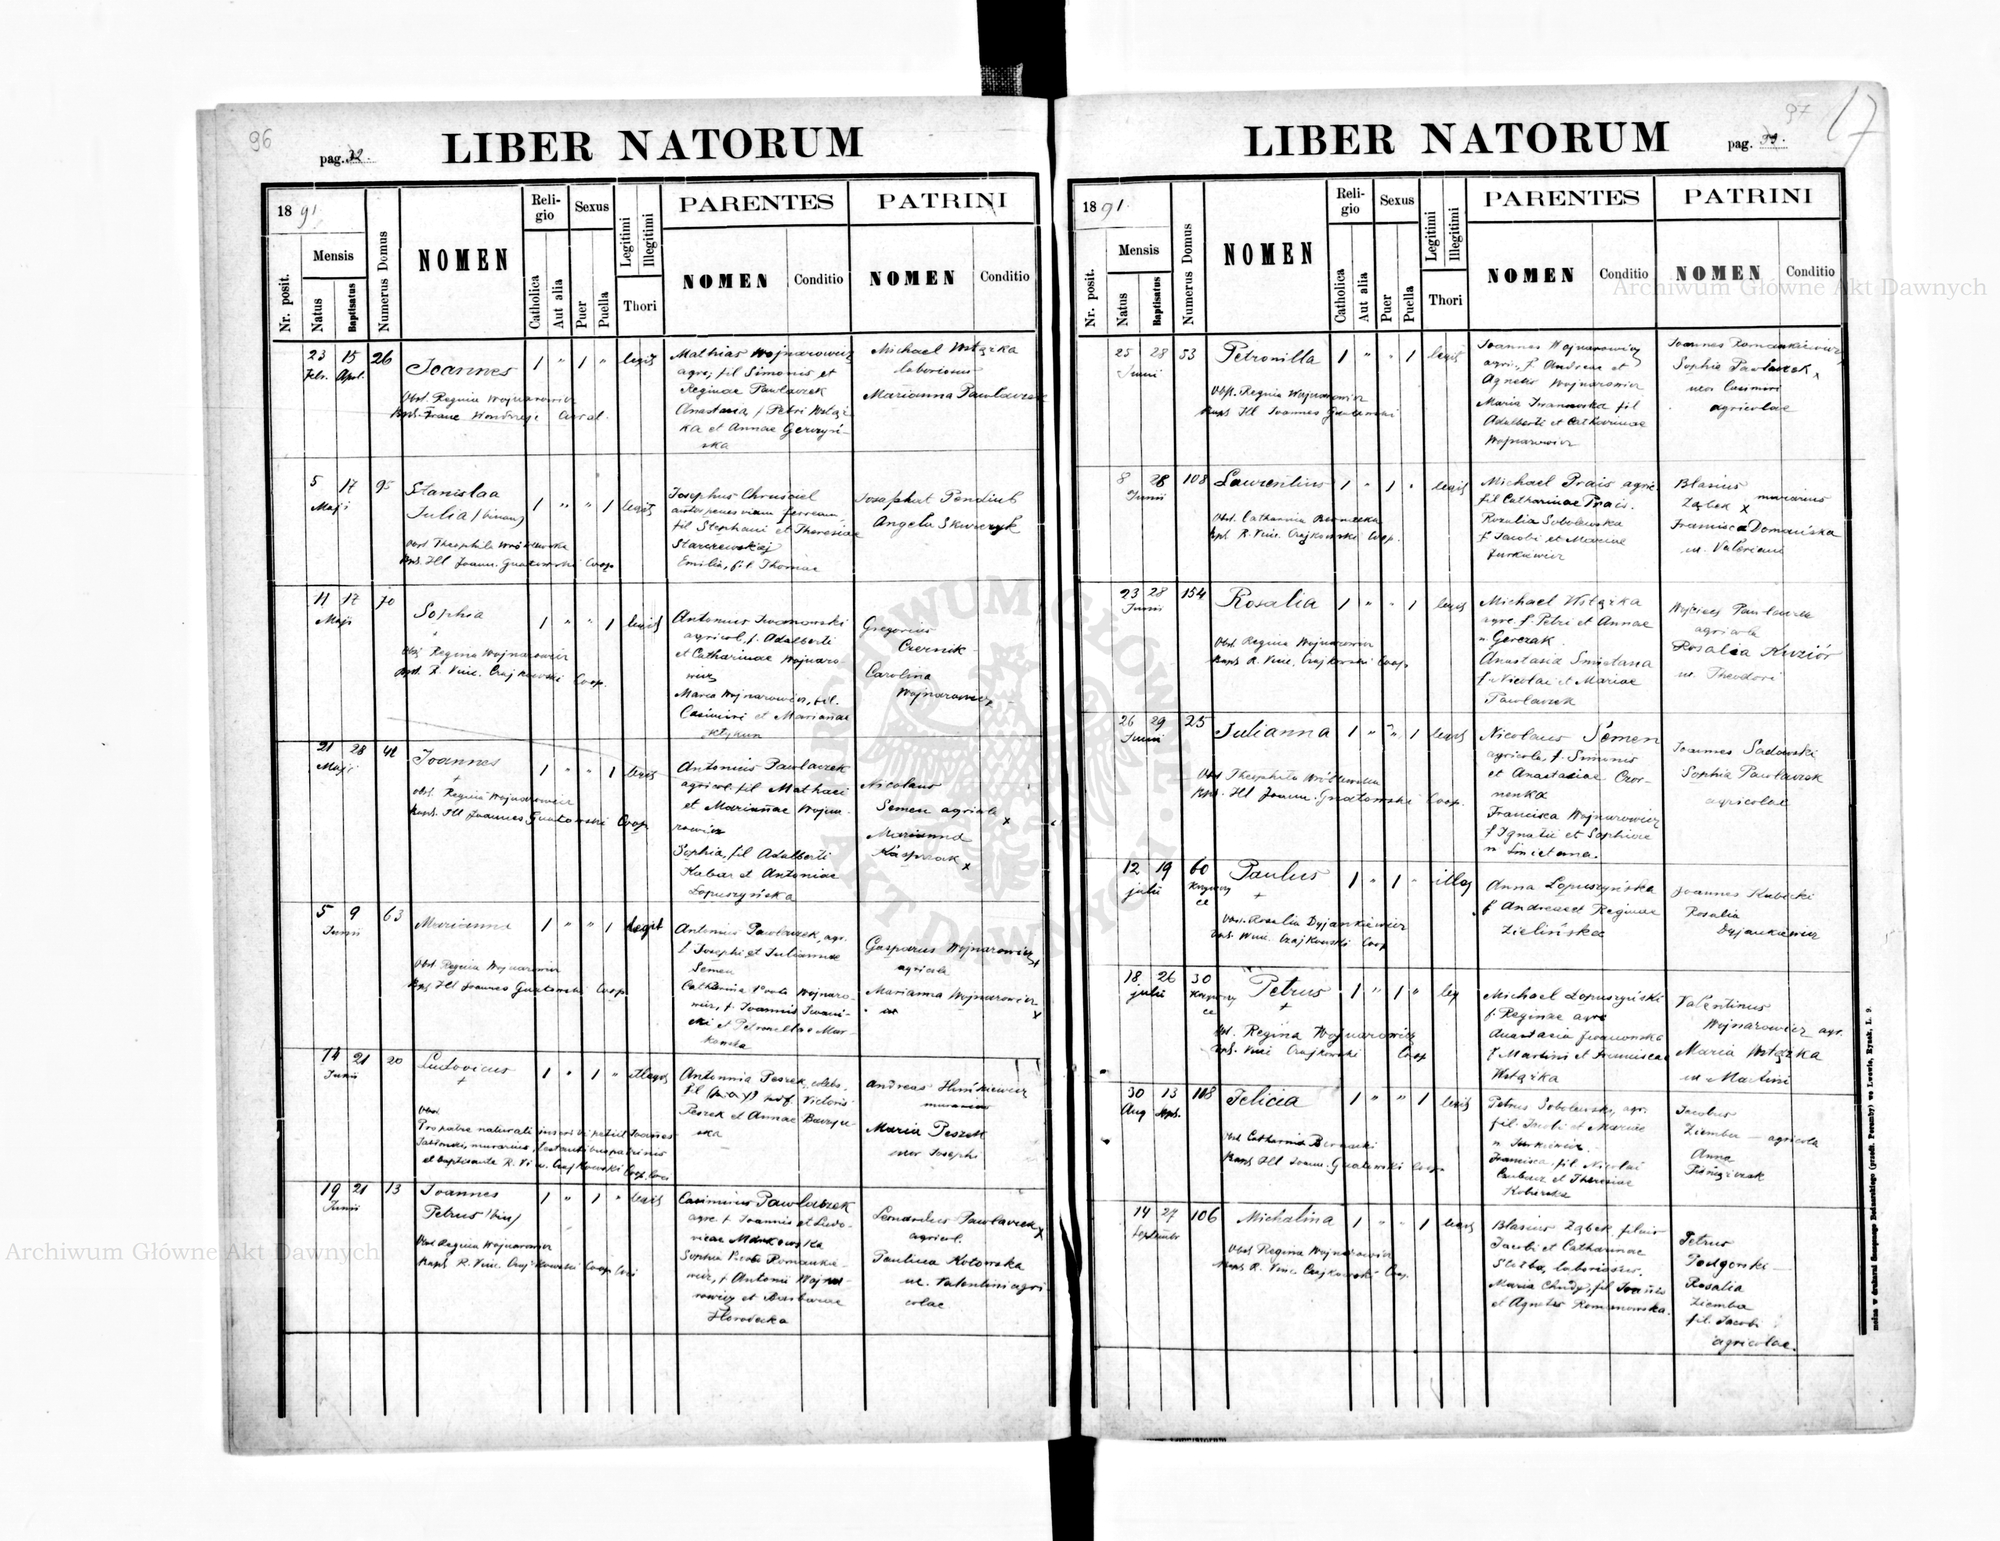 96
pag. 32.
LIBER NATORUM
1891
Mensis
Nr. posit.
Natus
Baptisatus
Numerus Domus
NOMEN
Religio
Catholica
Aut alia
Sexus
Puer
Puella
Legitimi
Illegitimi
Thori
PARENTES
NOMEN
Conditio
PATRINI
NOMEN
Conditio
23 15 26
Febr. Apl.
Joannes
1 " 1 " legit
Obst. Regina Wojnarowicz
Mathias Wojnarowicz
agr., fil Simonis et
Reginae Pawlaczek
Anastasia f Petri Wstąż
ka et Annae Gerczyń-
ska
Michael Wstążka
laboriosus
Marianna Pawlaczek
5 17 95
Maji
Stanislaa
Julia
1 " " 1 legit
Obst Theophila Wróblewska
Bapt. Hl Joann. Gnatowski Coop
Josephus
fil Stephani et Theresiae
Emilia, fil Thomae
Angela
11 17 70
Maji
Sophia
1 " " 1 legit
Obst Regina Wojnarowicz
Bapt. R. Vinc. Czajkowski Coop.
Antonius Iwanowski
agricol., f. Adalberti
et Catharinae Wojnaro-
wicz
Maria Wojnarowicz, fil.
Casimiri et Mariannae
Gregorius
Czernik
Carolina
Wojnarowicz
21 28 42
Maji
Joannes
+
1 " " 1 legit
Obst. Regina Wojnarowicz
Bapt. Hl Joannes Gnatowski Coop
Antonius Pawlaczek
agricol. fil Mathaei
et Mariannae Wojna-
rowicz
Sophia, fil Adalberti
Kubas et Antoniae
Łopuszyńska
Nicolaus
Semen agricola x
Marianna
Kasprzak x
5 9 63
Junii
Marianna
1 " " 1 legit
Obst Regina Wojnarowicz
Bapt Hl Joannes Gnatowski Coop
Antonius Pawlaczek, agr.
f Josephi et Juliannae
Semen
Catharina Wojnaro-
wicz, f. Joannis
Gasparus Wojnarowicz
agricola
Marianna Wojnarowicz
14 21 20
Junii
Ludovicus
+
1 " 1 " illegit
Pro patre naturali inseri petiit Joannes
et baptisante R. Vinc. Czajkowski Coop.
Antonia Peszek, coelebs
Peszek et Annae
Andreas
murarius
Maria Peszek
uxor Josephi
19 21 13
Junii
Joannes
Petrus
1 " 1 " legit
Obst Regina Wojnarowicz
Bapt R. Vinc. Czajkowski Coop
Casimirus Pawlaczek
agr. f Joannis et Ludo-
vicae
Sophia Romankie-
wicz, f Antonii Wojna-
rowicz et Barbarae
Horodecka
Leonardus Pawlaczek x
agricol.
Paulina Kotowska
ux. Valentini agri-
colae
97
17
pag. 33.
LIBER NATORUM
1891.
Mensis
Nr. posit.
Natus
Baptisatus
Numerus Domus
NOMEN
Religio
Catholica
Aut alia
Sexus
Puer
Puella
Legitimi
Illegitimi
Thori
PARENTES
NOMEN
Conditio
PATRINI
NOMEN
Conditio
25 28 53
Junii
Petronilla
1 " " 1 legit
Obst. Regina Wojnarowicz
Bapt Hl Joannes Gnatowski
Joannes Wojnarowicz
agr., f. Andreae et
Agnetis Wojnarowicz
Maria Iwanowska fil
Adalberti et Catharinae
Wojnarowicz
Joannes Romankiewicz
Sophia Pawlaczek x
uxor Casimiri
agricolae
8 28 108
Junii
Laurentius
1 " 1 " legit
Obst. Catharina Bernacka
Bapt R. Vinc. Czajkowski Coop.
Michael Prais agric.
fil Catharinae Prais.
Rozalia Sobolewska
f Jacobi et Mariae
Jurkiewicz
Blasius
Ząbek x murarius
Francisca Domańska
ux. Valeriani
23 28 154
Junii
Rosalia
1 " " 1 legit
Obst Regina Wojnarowicz
Bapt R. Vinc. Czajkowski Coop
Michael Wstążka
agr. f. Petri et Annae
n. Gerczak
Anastasia Smietana
f Nicolai et Mariae
Pawlaczek
Wojciech Pawlaczek
agricola
Rosalia Kuziór
ux. Theodori
26 29 25
Junii
Julianna
1 " " 1 legit
Obst Theophila Wróblewska
Bapt. Hl Joann. Gnatowski Coop.
Nicolaus Semen
agricola, f. Simonis
et Anastasiae Czor-
nenka
Francisca Wojnarowicz
f Ignatii et Sophiae
n Smietana.
Joannes Sadowski
Sophia Pawlaczek
agricolae
12 19 60
julii
Paulus
+
1 " 1 " illeg
Obst. Rosalia Dyjankiewicz
Bapt. Vinc. Czajkowski Coop
Anna Łopuszyńska
f Andreae et Reginae
Zielińska
Joannes Kubicki
Rosalia
Dyjankiewicz
18 26 30
julii
Petrus
+
1 " 1 " leg
Obst. Regina Wojnarowicz
Bapt. Vinc Czajkowski Coop
Michael Łopuszyński
f. Reginae agr
Anastasia Iwanowska
f Martini et Franciscae
Wstążka
Valentinus
Wojnarowicz agr.
Maria Wstążka
ux Martini
30 13 108
Aug Spt.
Felicia
1 " " 1 legit
Obst Catharina Bernacki
Bapt Hl Joann. Gnatowski Coop
Petrus Sobolewski, agr.
fil. Jacobi et Mariae
n. Jurkiewicz.
Francisca, fil. Nicolai
et Theresiae
Jacobus
Ziemba — agricola
Anna
14 27 106
Septembr
Michalina
1 " " 1 legit
Obst Regina Wojnarowicz
Bapt R. Vinc. Czajkowski Coop.
Blasius Ząbek filius
Jacobi et Catharinae
laboriosus.
Maria Chudy, fil Joannis
et Agnetis Romanowska.
Petrus
Podgorski —
Rosalia
Ziemba
fil. Jacobi
agricolae.
Archiwum Główne Akt Dawnych
Archiwum Główne Akt Dawnych
ARCHIWUM GŁÓWNE
AKT DAWNYCH